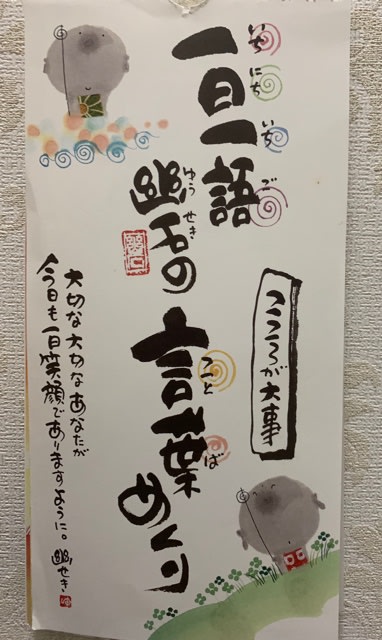 一日一語
いちにちいちご
幽石の
ゆうせき
言葉めくり
ことば
こころが大事
大切な大切なあなたが
今日も一日笑顔でありますように。
幽せき